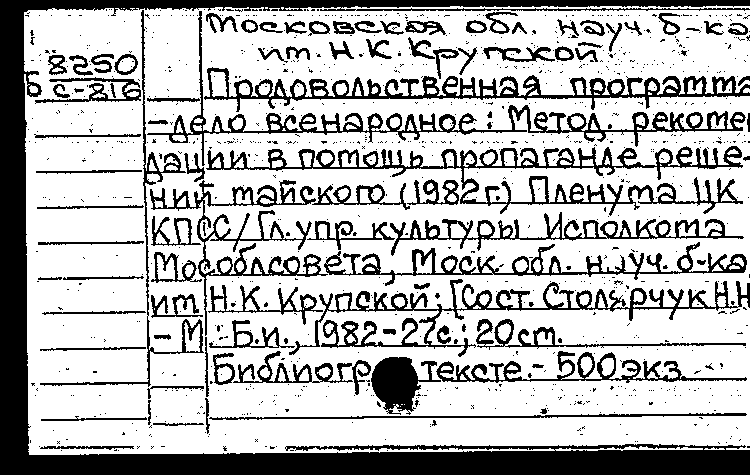 Московская обл. науч. б-ка
им. Н.К. Крупской.
8250
Б с-816
Продовольственная программа
-дело всенародное: Метод. рекомен
дации в помощь пропаганде реше-
ний майского (1982г.) Пленума ЦК
КПСС/Гл. упр. культуры Исполкома
Мособлсовета, Моск. обл. науч. б-ка
им Н.К. Крупской; [Сост. Столярчук Н.Н
- М.: Б.и., 1982.-27с.; 20 см.
Библиогр тексте.- 500 экз.